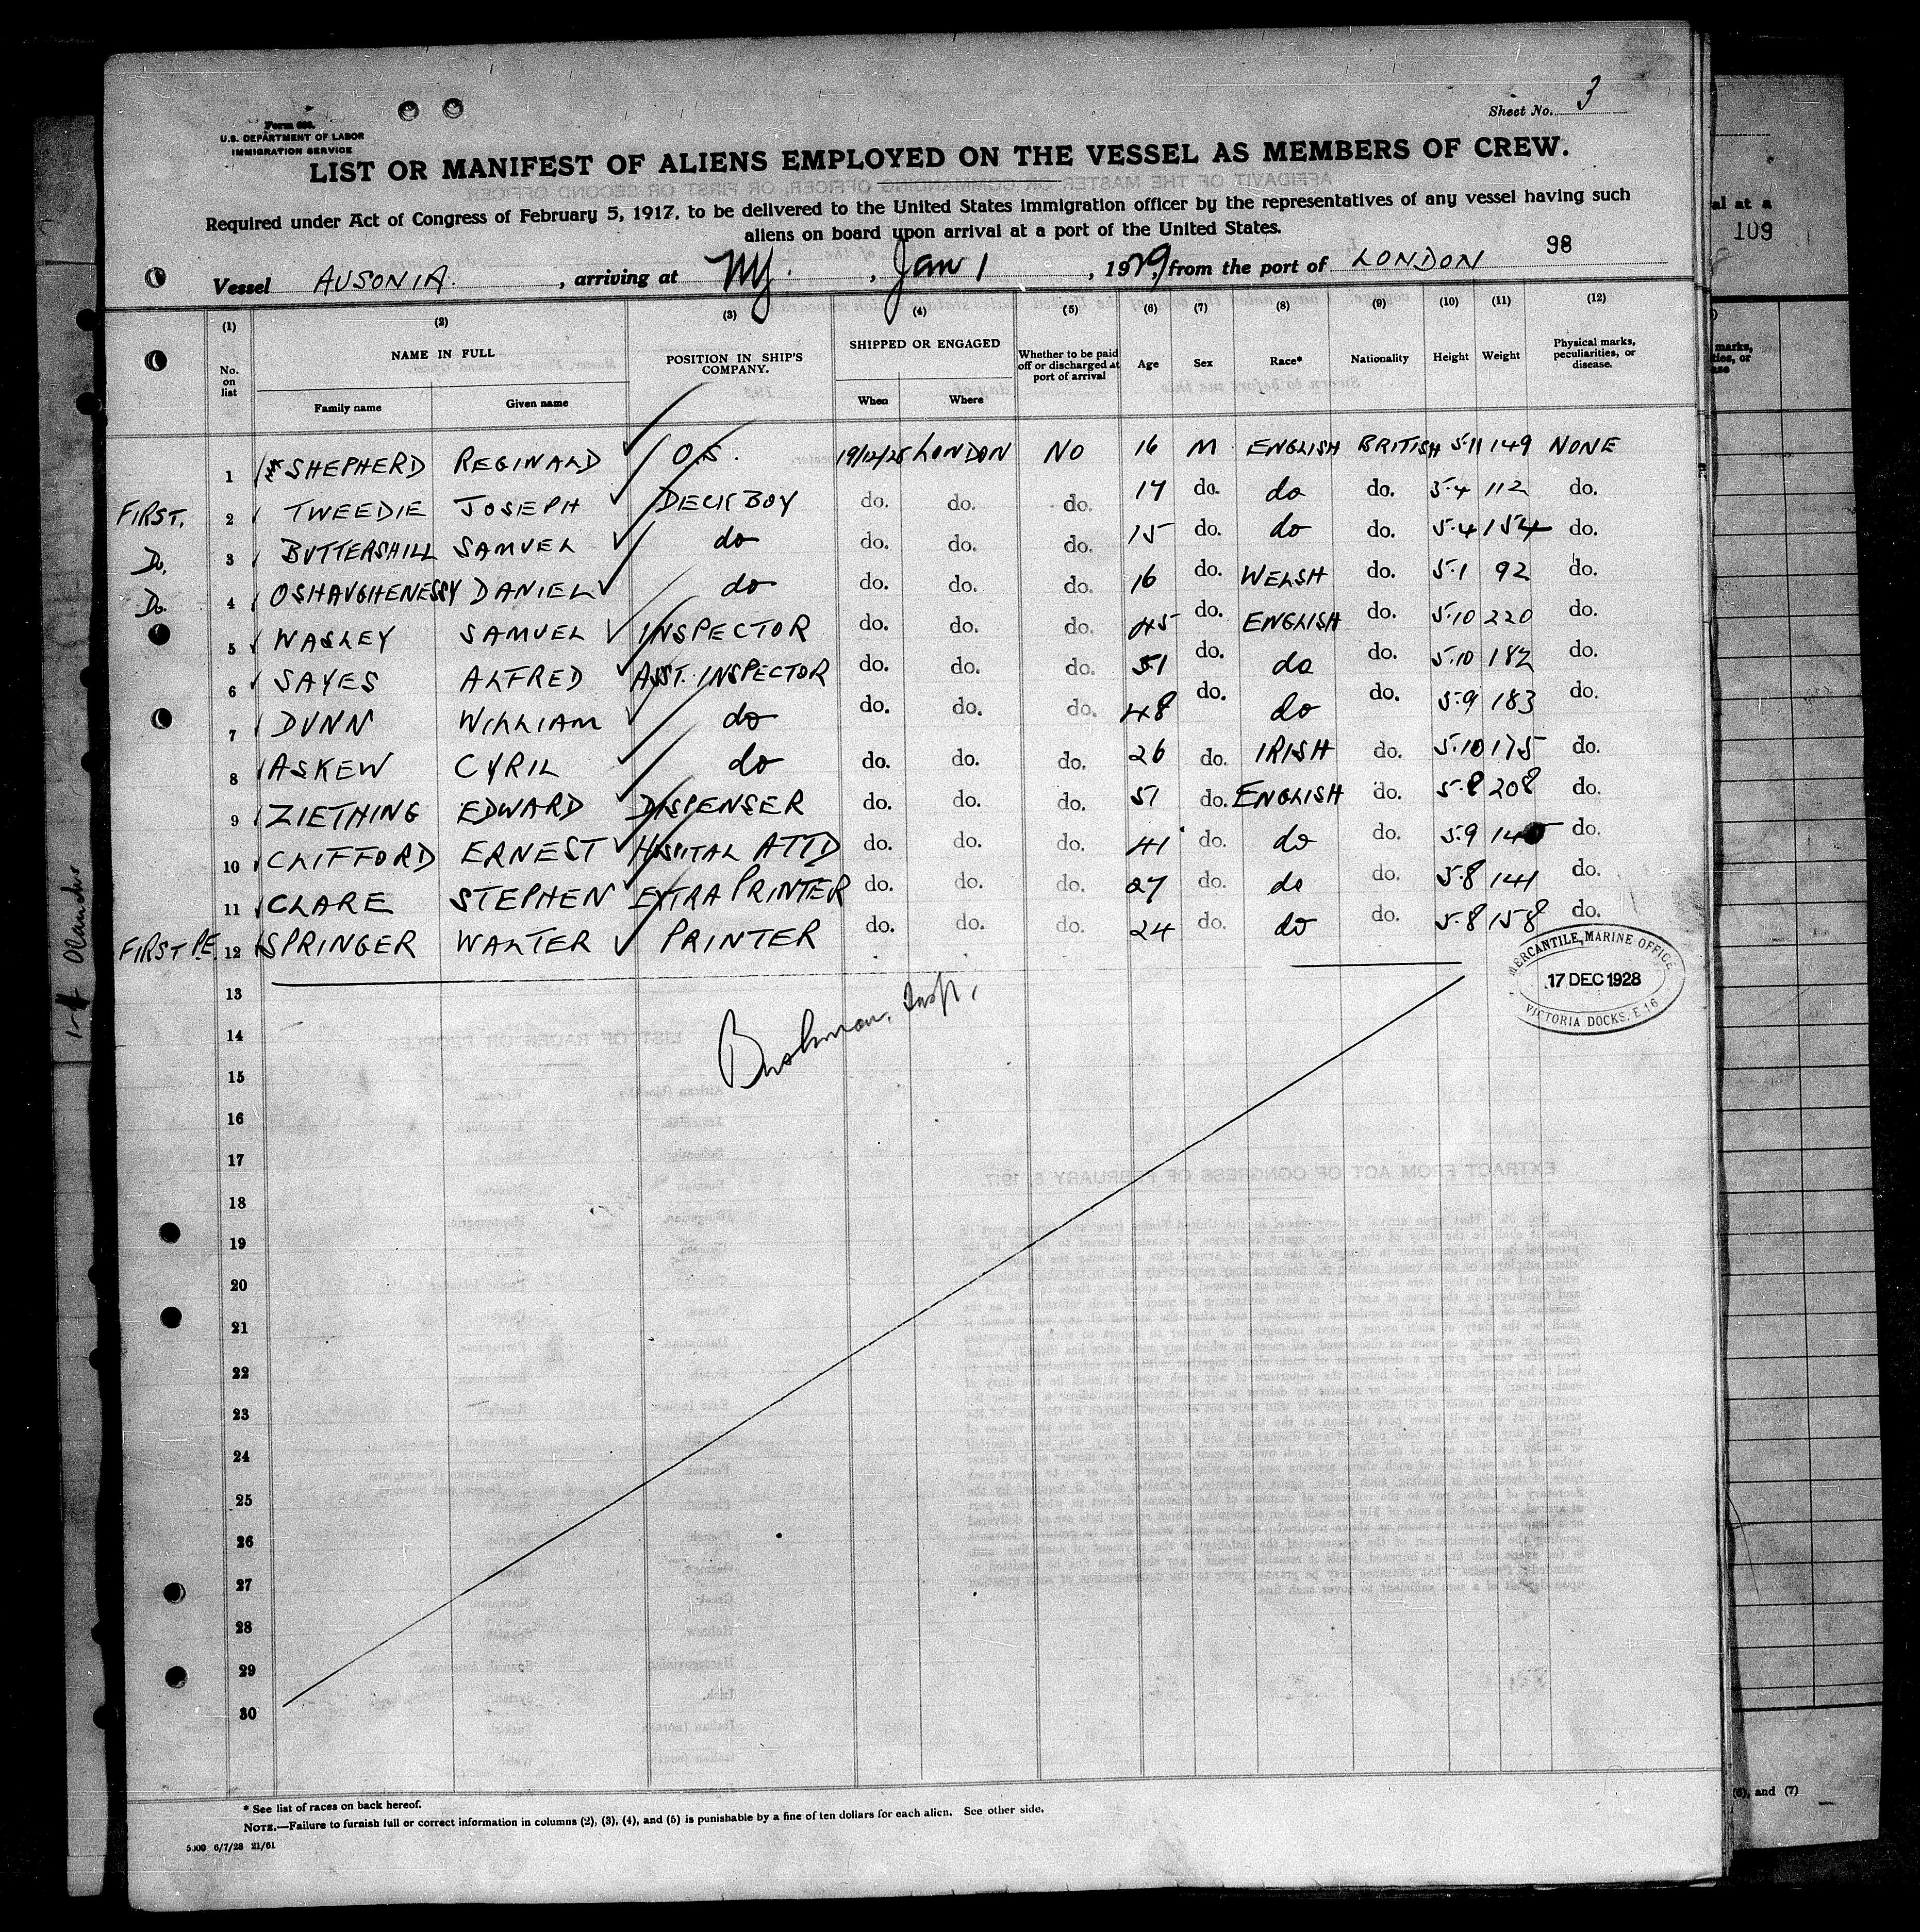 Sheet No. 3
Form 680.
U.S. DEPARTMENT OF LABOR
IMMIGRATION SERVICE
LIST OR MANIFEST OF ALIENS EMPLOYED ON THE VESSEL AS MEMBERS OF CREW.
Required under Act of Congress of February 5, 1917, to be delivered to the United States immigration officer by the representatives of any vessel having such
aliens on board upon arrival at a port of the United States.
98
Vessel AUSONIA. , arriving at NY. , Jan 1 , 1929, from the port of LONDON
(1) (2) (3) (4) (5) (6) (7) (8) (9) (10) (11) (12)
No. on list NAME IN FULL POSITION IN SHIP'S COMPANY. SHIPPED OR ENGAGED Whether to be paid off or discharged at port of arrival Age Sex Race* Nationality Height Weight Physical marks, peculiarities, or disease.
Family name Given name When Where
1 SHEPHERD REGINALD O.S. 19/12/28 LONDON NO 16 M ENGLISH BRITISH 5.11 149 NONE
FIRST. 2 TWEEDIE JOSEPH DECK BOY do. do. do. 17 do. do do. 5.4 112 do.
Do. 3 BUTTERSHILL SAMUEL do do. do. do. 15 do. do do. 5.4 154 do.
Do. 4 OSHAUGHENESSY DANIEL do do. do. do. 16 do. WELSH do. 5.1 92 do.
5 WASLEY SAMUEL INSPECTOR do. do. do. 45 do. ENGLISH do. 5.10 220 do.
6 SAYES ALFRED ASST. INSPECTOR do. do. do. 51 do. do do. 5.10 182 do.
7 DUNN WILLIAM do do. do. do. 48 do. do do. 5.9 183 do.
8 ASKEW CYRIL do do. do. do. 26 do. IRISH do. 5.10 175 do.
9 ZIETHING EDWARD DISPENSER do. do. do. 51 do. ENGLISH do. 5.8 208 do.
10 CLIFFORD ERNEST HOSPITAL ATTD do. do. do. 41 do. do do. 5.9 145 do.
11 CLARE STEPHEN EXTRA PRINTER do. do. do. 27 do. do do. 5.8 141 do.
FIRST P.E. 12 SPRINGER WALTER PRINTER do. do. do. 24 do. do do. 5.8 158 do.
MERCANTILE MARINE OFFICE
17 DEC 1928
VICTORIA DOCKS. E.16
13
Bushman, Insp.
14
15
16
17
18
19
20
21
22
23
24
25
26
27
28
29
30
* See list of races on back hereof.
NOTE.—Failure to furnish full or correct information in columns (2), (3), (4), and (5) is punishable by a fine of ten dollars for each alien. See other side.
5000 6/7/28 21/61
al at a
109
marks,
(6), and (7)